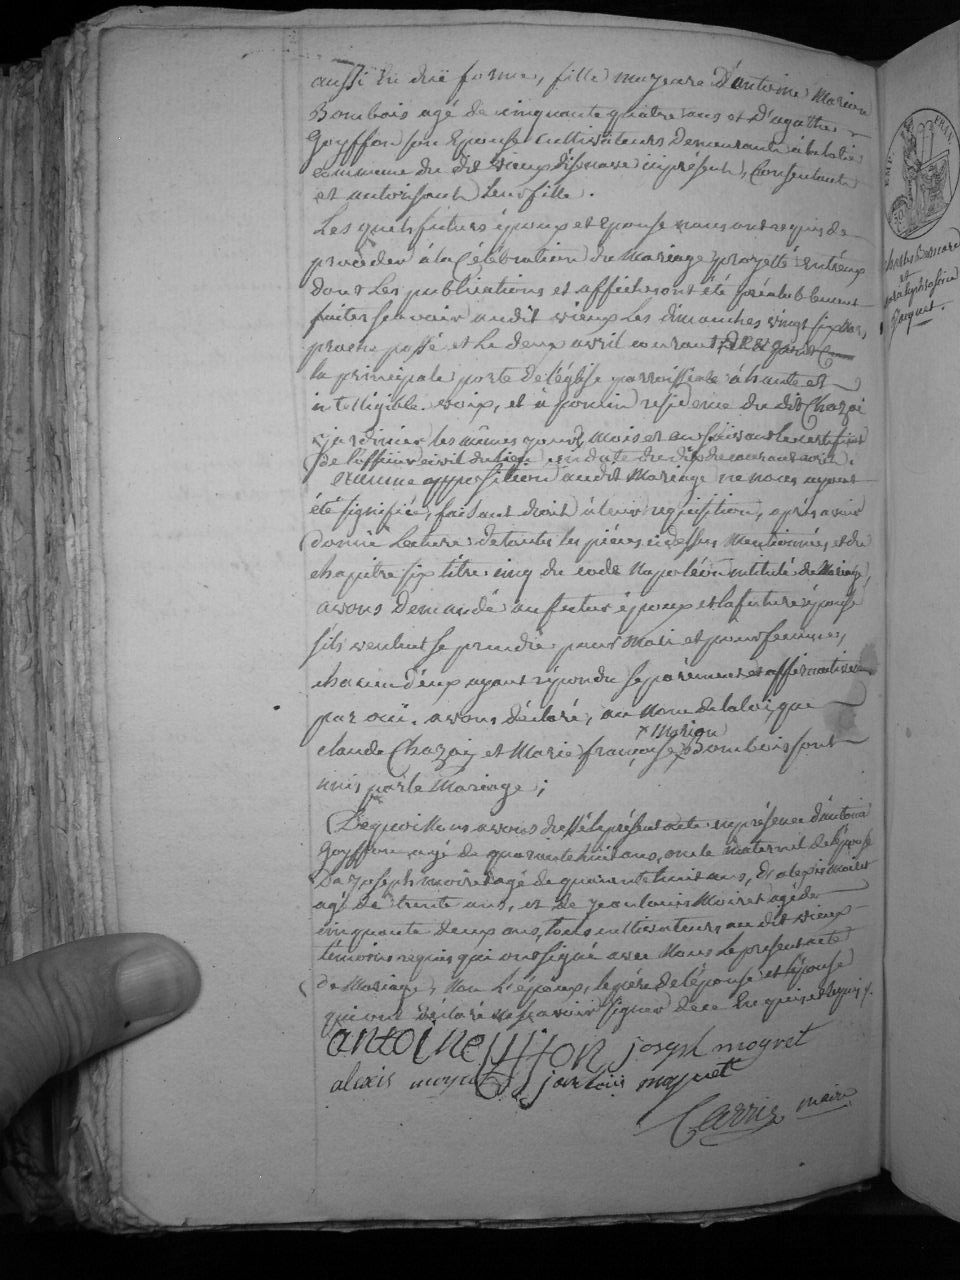 aussi en due forme, fille majeure d'antoine Marion
Bombois agé de cinquante quatre ans et d'agathe
Goyffon son Epouse cultivateurs demeurants à
commune du dit vieux d'isenave ici présents, consentants
et autorisant leur fille.
Les quels futurs époux et épouse nous ont requis de
procéder à la Célébration du Mariage projetté entr'eux
dont les publications et affiches ont été préalablement
faites scavoir audit vieux les dimanches vingt six Mars
proche passé et le deux avril courant
la principale porte de l'église parroissiale à haute et
intelligible voix, et à poncin residence du dit Chazai
jardinier les mêmes jours, mois et an suivant le certificat
de l'officier civil du lieu, en date du dix du courant avril.
Aucune opposition audit Mariage ne nous ayant
été signifiée, faisant droit à leur requisition, après avoir
donné lecture de toutes les pièces ci dessus Mentionnées, et du
chapitre six titre cinq du code Napoléon intitulé du Mariage,
avons demandé au futur époux et la future épouse
s'ils veulent se prendre pour Mari et pour femme,
chacun d'eux ayant répondu séparément et affirmativement
par oui. avons déclaré, au Nom de la loi, que
x Marion
claude Chazai et Marie françoise x Bombois sont
unis par le Mariage ;
De quoi Nous avons dressé le présent acte en présence d'antoine
Goyffon agé de quarante huit ans, oncle maternel de l'épouse
De joseph moiret agé de quarante huit ans, d'alexis Moiret
agé de trente ans, et de jean louis Moiret agé de
cinquante deux ans, tous cultivateurs au dit vieux
témoins requis qui ont signé avec Nous le present acte
de Mariage, Non l'époux, le père de l'épouse et l'épouse
qui ont déclaré ne savoir signer de ce Enquis et requis.
antoine Goyffon joseph moyret
alexis moyret jean louis moyret
Carrier maire
EMP. FRAN.
50
Charles Bernard
et
Josephine
Jacquet.